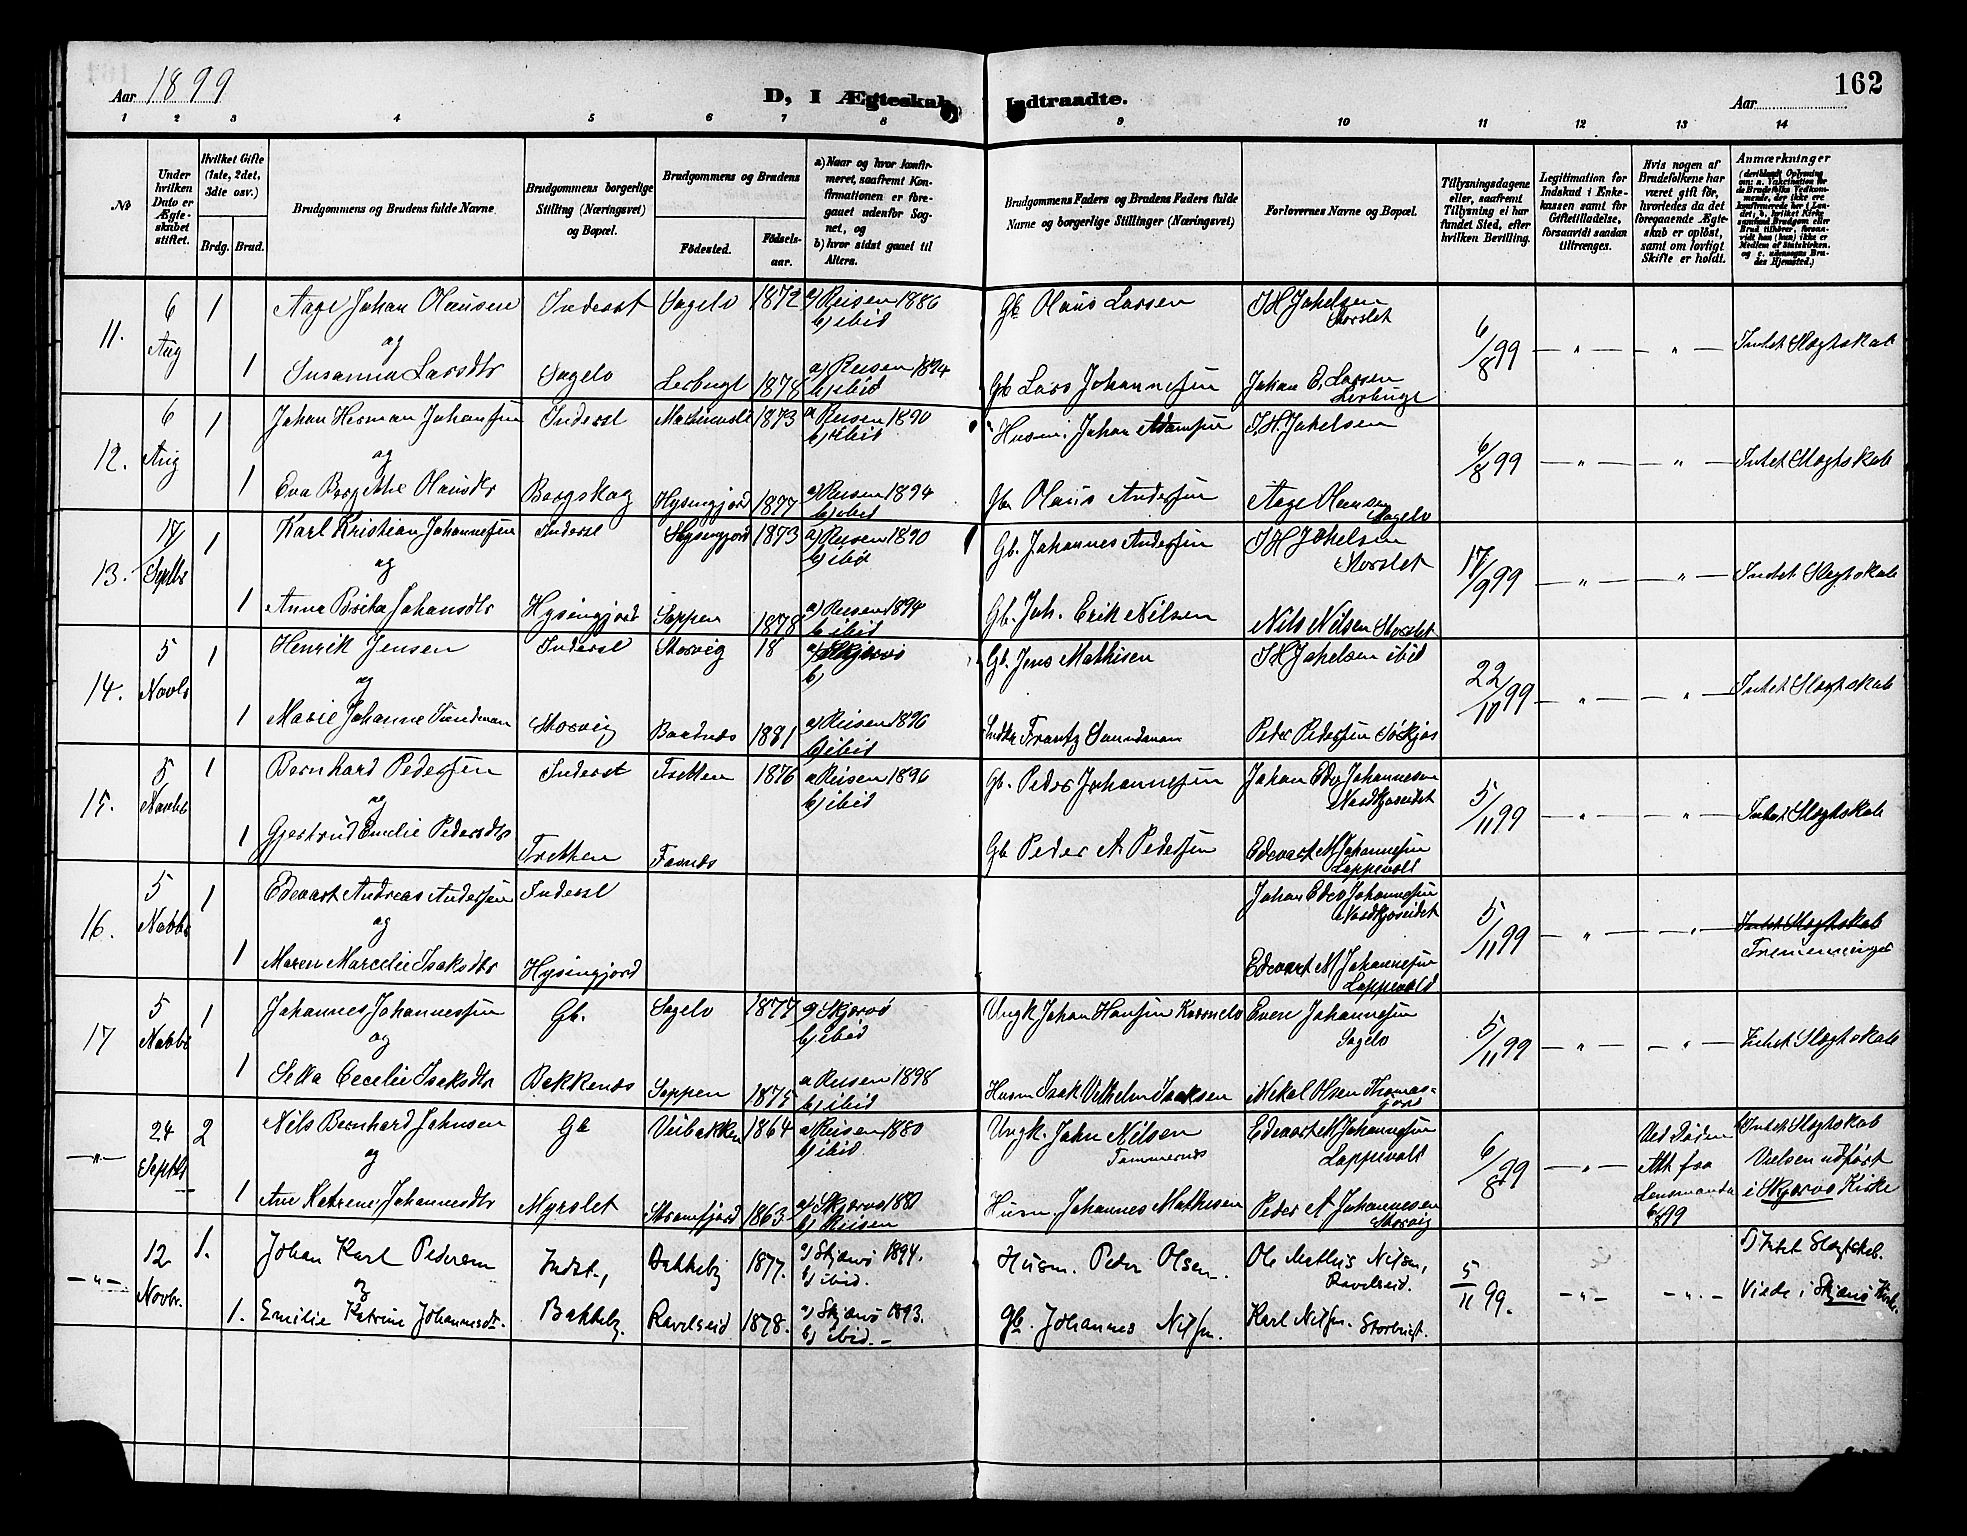 Aar 1899
D, I Ægteskab Indtraadte.
Aar
162
1 2 3 4 5 6 7 8 9 10 11 12 13 14
No
Under hvilken Dato er Ægteskabet stiftet.
Hvilket Gifte (1ste, 2det, 3die osv.)
Brdg. Brud.
Brudgommens og Brudens fulde Navne
Brudgommens borgerlige Stilling (Næringsvei) og Bopæl.
Brudgommens og Brudens
Födested. Födselsaar.
a) Naar og hvor konfirmeret, saafremt Konfirmationen er foregaaet udenfor Sognet, og
b) hvor sidst gaaet til Alters.
Brudgommens Faders og Brudens Faders fulde Navne og borgerlige Stillinger (Næringsvei)
Forlovernes Navne og Bopæl.
Tillysningsdagene eller, saafremt Tillysning ei har fundet Sted, efter hvilken Bevilling.
Legitimation for Indskud i Enkekassen samt for Giftetilladelse, forsaavidt saadan tiltrænges.
Hvis nogen af Brudefolkene har været gift för, hvorledes da det foregaaende Ægteskab er oplöst, samt om lovligt Skifte er holdt.
Anmærkninger
11. 6 Aug 1 Aage Johan Olausen Inderst Sagelv 1872 a) Reisen 1886 b) ibid Gb Olaus Larsen I H Jakelsen Storslet 6/8 99 — " — — " — Intet Slegtskab
og
1 Susanna Larsdtr Sagelv Lerbugt 1878 a) Reisen 1894 b) ibid Gb Lars Johannessen Johan E. Larsen Lerbugt
12. 6 Aug 1 Johan Herman Johansen Inderst 1873 a) Reisen 1890 b) ibid Husm. Johan Adamsen I. H. Jakelsen 6/8 99 — " — — " — Intet Slegtskab
og
1 Eva Bergethe Olausdtr Borgskag Hysingjord 1877 a) Reisen 1894 b) ibid Gbr Olaus Andersen Aage Olausen Sagelv
13. 17 Septbr 1 Karl Kristian Johannessen Inderst Hysingjord 1873 a) Reisen 1890 b) ibid Gb. Johannes Andersen I H Jakelsen Storslet 17/9 99 — " — — " — Intet Slegtskab
og
1 Anna Brita Johansdtr Hysingjord Soppen 1878 a) Reisen 1894 b) ibid Gb. Joh. Erik Nilsen Nils Nilsen Storslet
14. 5 Novbr 1 Henrik Jensen Inderst Storvig 18 a) Skjervö b) Gb. Jens Mathisen I H Jakelsen ibid 22/10 99 — " — — " — Intet Slegtskab
og
1 Marie Johanne Sundman Storvig Baadnes 1881 a) Reisen 1896 b) ibid Frantz Sundman Peder Pedersen Sökjos
15. 5 Novbr 1 Bernhard Pedersen Inderst Tretten 1876 a Reisen 1896 b) ibid Gb. Peder Johannessen Johan Edv Johannesen Nordkjoseidet 5/11 99 — " — — " — Intet Slegtskab
og
1 Gjertrud Emelie Pedersdtr Tretten Favnes Gb Peder A Pedersen Edevart M Johannessen Lappevold
16. 5 Novbr 1 Edevart Andreas Andersen Inderst Johan Edv Johannessen Nordkjoseidet 5/11 99 — " — — " — Intet Slegtskab
og
1 Maren Marcelie Isaksdtr Hysingjord Edevart M Johannessen Lappevold Fremmenninger
17 5 Novbr 1 Johannes Johannessen Gb. Sagelv 1877 a) Skjervö b) ibid Ungk Johan Hansen Kvænelv Even Johannessen Sagelv 5/11 99 — " — — " — Intet Slegtskab
og
1 Cecelie Isaksdtr Bakkenes Soppen 1875 a Reisen 1898 b) ibid Husm Isak Vilhelm Isaksen Nekal Olsen Thomasjord
— " — 24 Septbr 2 Nils Bernhard Johnsen Gb Veibakken 1864 a Reisen 1880 b) ibid Ungk. John Nilsen Tommernes Edevart M Johannessen Lappevold 6/8 99 — " — Ved Döden Att fra Lensmanden 6/8 99 Intet Slegtskab
og Vielsen udfört i Skjervö Kirke
1 Ane Katrene Johannesdtr Myrslet Straumfjord 1863 a) Skjervö 1880 b) Reisen Husm. Johannes Mathisen Peder A Johannesen Storvig
— " — 12 Novbr. 1. Johan Karl Pedersen Indst, Bakkeby 1877. a) Skjærvö 1894. b) ibid. Husm. Peder Olsen. Ole Mathis Nilsen, Ravelseid. 5/11 99. — " — — " — Intet Slegtskab.
og Viede i Skjærvö Kirke.
1. Emilie Katrine Johannesdt. Bakkeby. Ravelseid 1878. a) Skjærvö 1893. b) ibid. — Gb. Johannes Nilsen. Karl Nilsen. Storbugt.